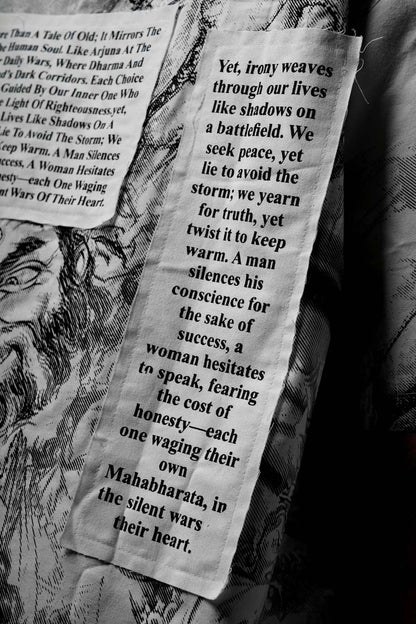 re Than A Tale Of Old; It Mirrors The
he Human Soul. Like Arjuna At The
r Daily Wars, Where Dharma And
d's Dark Corridors. Each Choice
Guided By Our Inner One Who
e Light Of Righteousness.yet,
Lives Like Shadows On A
Lie To Avoid The Storm; We
Keep Warm. A Man Silences
uccess, A Woman Hesitates
nesty—each One Waging
ent Wars Of Their Heart.
Yet, irony weaves
through our lives
like shadows on
a battlefield. We
seek peace, yet
lie to avoid the
storm; we yearn
for truth, yet
twist it to keep
warm. A man
silences his
conscience for
the sake of
success, a
woman hesitates
to speak, fearing
the cost of
honesty—each
one waging their
own
Mahabharata, in
the silent wars
their heart.